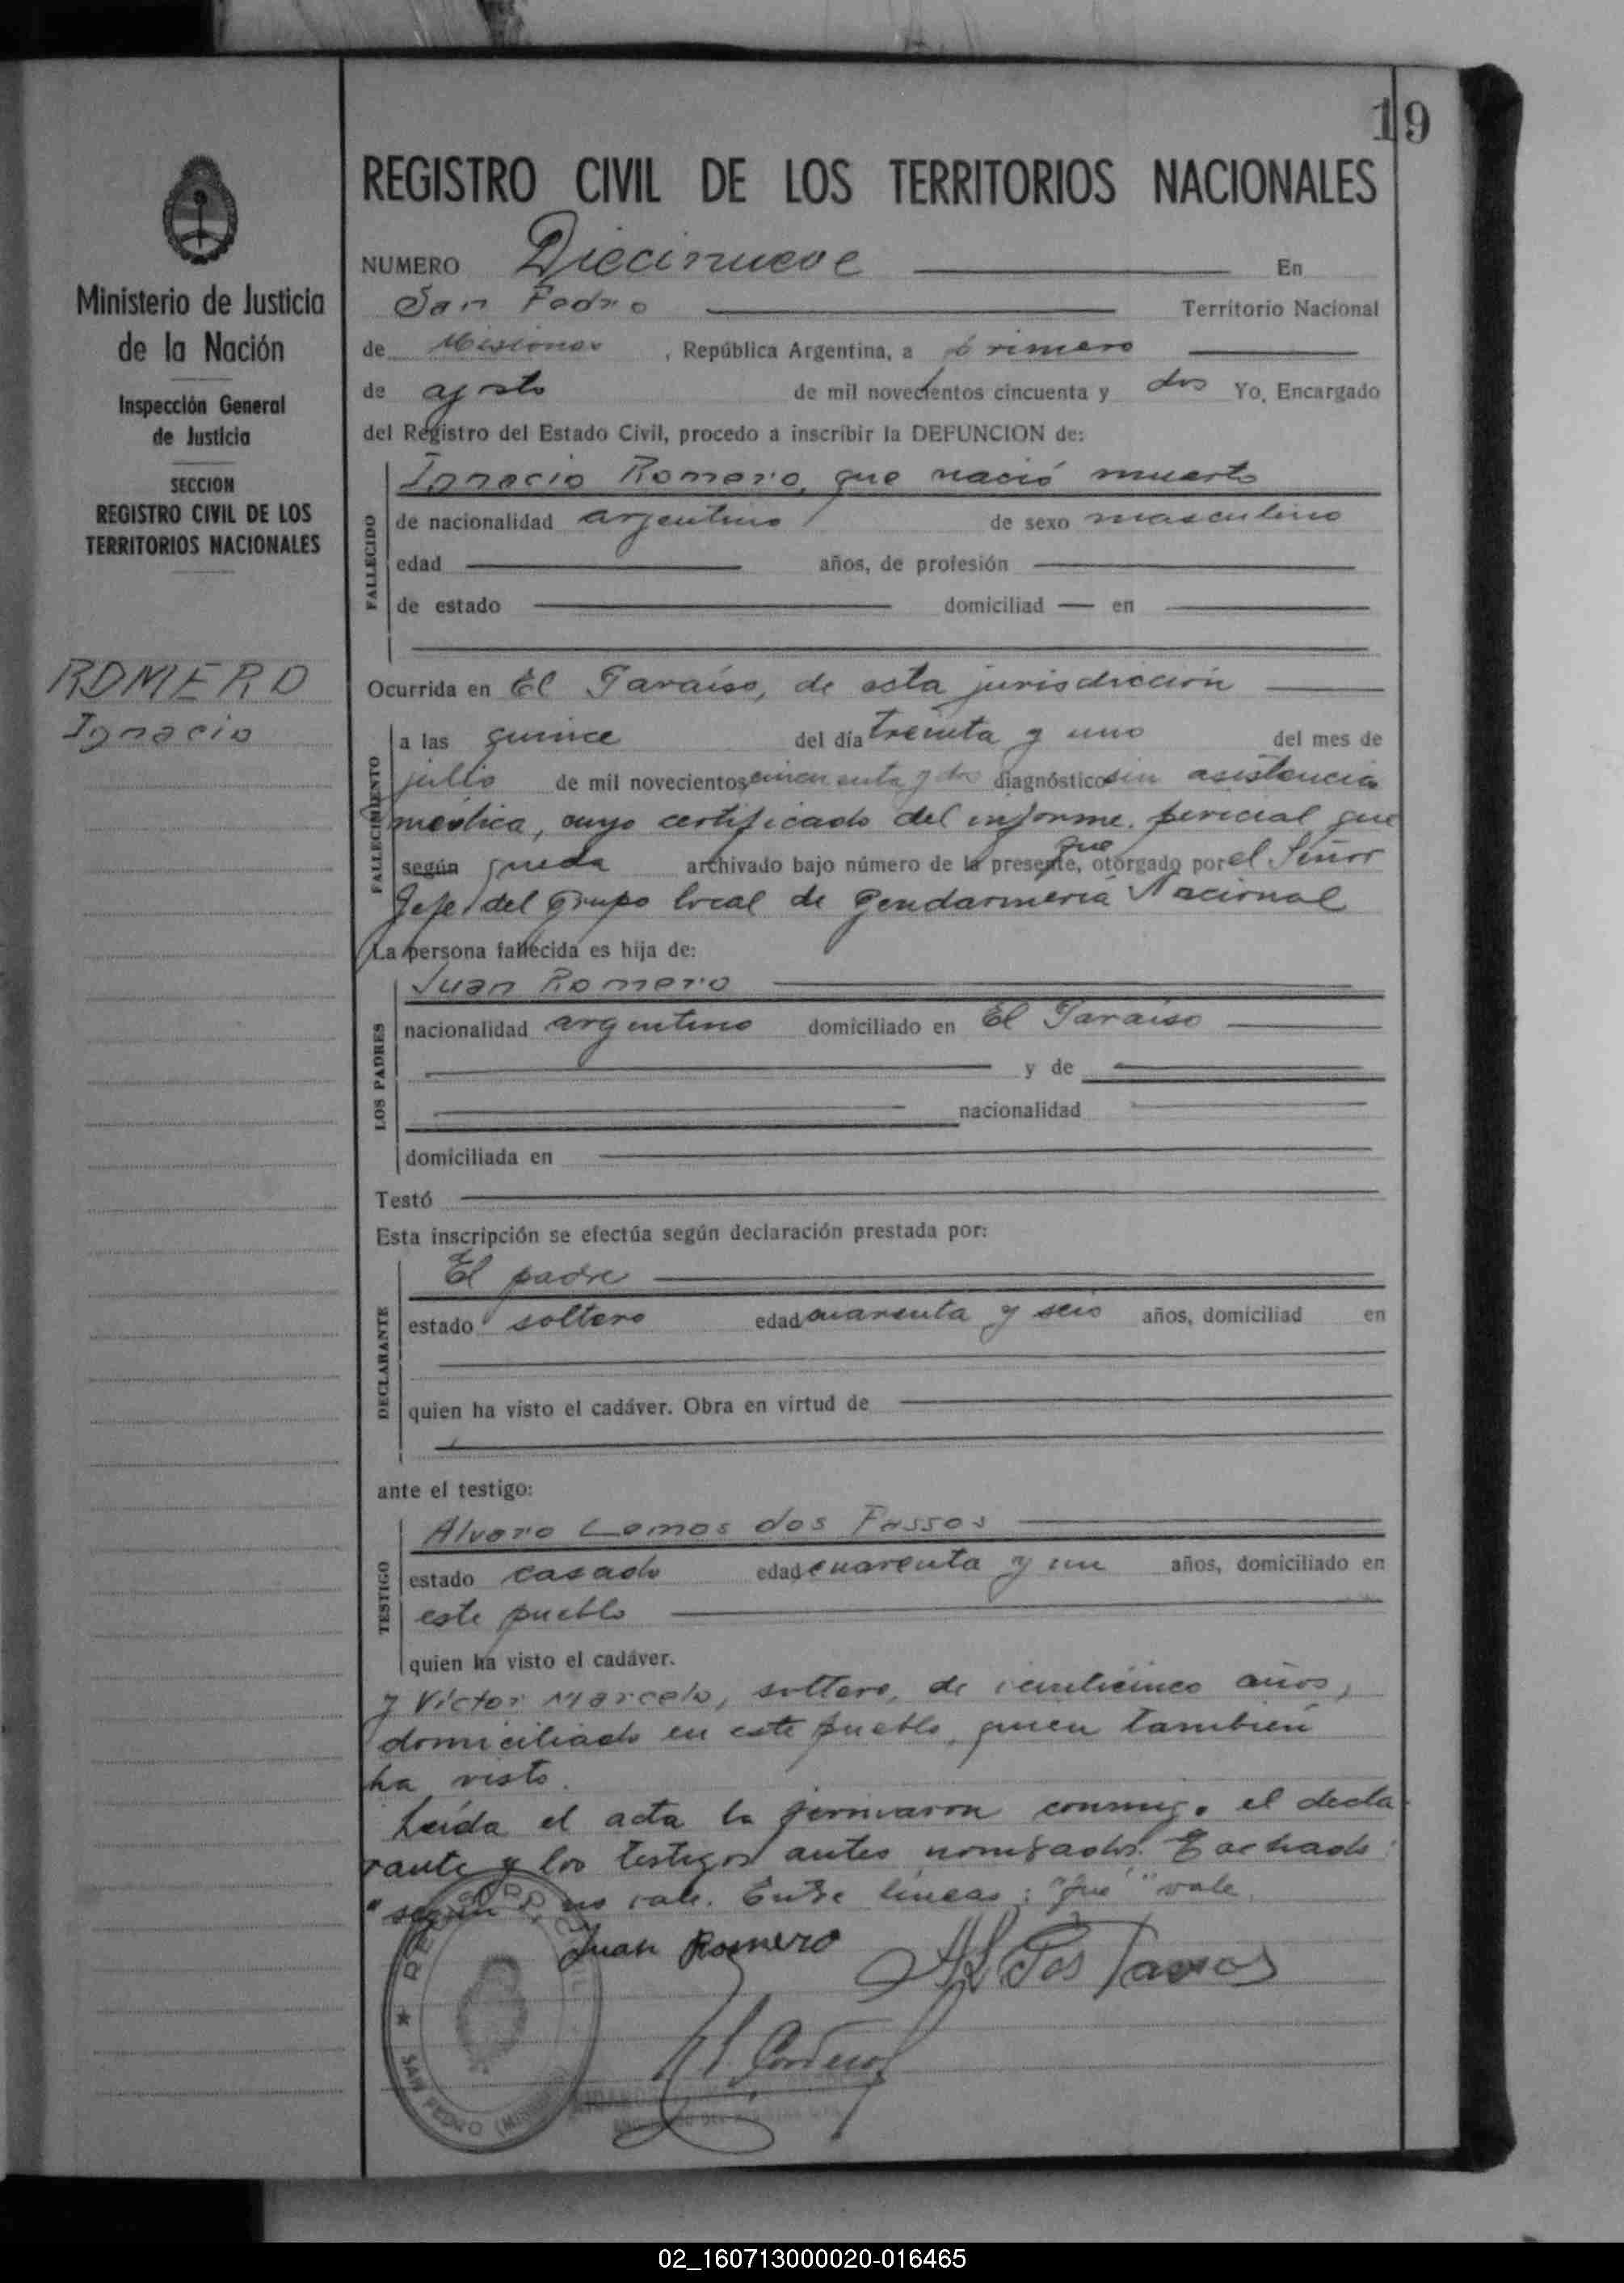 19
REGISTRO CIVIL DE LOS TERRITORIOS NACIONALES
Ministerio de Justicia
de la Nación
Inspección General
de Justicia
SECCION
REGISTRO CIVIL DE LOS
TERRITORIOS NACIONALES
ROMERO
Ignacio
NUMERO Diecinueve En
San Pedro Territorio Nacional
de Misiones, República Argentina, a primero
de agosto de mil novecientos cincuenta y dos Yo, Encargado
del Registro del Estado Civil, procedo a inscribir la DEFUNCION de:
FALLECIDO
Ignacio Romero, que nació muerto
de nacionalidad argentino de sexo masculino
edad años, de profesión
de estado domiciliad en
Ocurrida en El Paraíso, de esta jurisdicción
FALLECIMIENTO
a las quince del día treinta y uno del mes de
julio de mil novecientos cincuenta y dos diagnóstico sin asistencia
médica, cuyo certificado del informe pericial que
que
según queda archivado bajo número de la presente, otorgado por el Señor
Jefe del Grupo local de Gendarmería Nacional
La persona fallecida es hija de:
LOS PADRES
Juan Romero
nacionalidad argentino domiciliado en El Paraíso
y de
nacionalidad
domiciliada en
Testó
Esta inscripción se efectúa según declaración prestada por:
DECLARANTE
El padre
estado soltero edad cuarenta y seis años, domiciliad en
quien ha visto el cadáver. Obra en virtud de
ante el testigo:
TESTIGO
Alvaro Lemos dos Passos
estado casado edad cuarenta y un años, domiciliado en
este pueblo
quien ha visto el cadáver.
y Víctor Marcelo, soltero, de veinticinco años,
domiciliado en este pueblo, quien también
ha visto.
Leída el acta la firmaron conmigo el decla
rante y los testigos antes nombrados. Tachado:
"según", no vale. Entre líneas: "que" vale.
Juan Romero
SAN PEDRO (MISIONES)
02_160713000020-016465